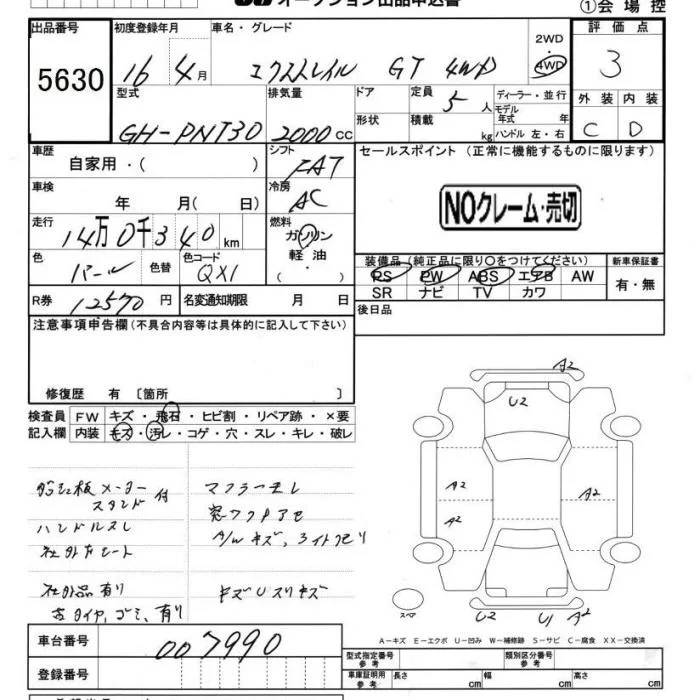 オークション出品申込書
①会場控
出品番号 5630
初度登録年月 16 4月
車名・グレード エクストレイル GT 4WD
2WD
4WD
評価点 3
外装 内装
C D
型式 GH-PNT30
排気量 2000cc
ドア
形状
定員 5人
積載 kg
ディーラー・並行
モデル年式 年
ハンドル 左・右
車歴 自家用・( )
シフト FAT
車検 年 月( 日)
冷房 AC
走行 14万0千340km
燃料 ガソリン
軽油
・( )
色 パール 色替
色コード QX1
R券 12570円
名変通知期限 月 日
セールスポイント (正常に機能するものに限ります)
NOクレーム・売切
装備品(純正品に限り○をつけてください)
PS PW ABS エアB AW
SR ナビ TV カワ
新車保証書
有・無
後日品
注意事項申告欄(不具合内容等は具体的に記入して下さい)
修復歴 有 〔箇所 〕
検査員記入欄
FW キズ・飛石・ヒビ割・リペア跡・×要
内装 キズ・汚レ・コゲ・穴・スレ・キレ・破レ
メーター
スタンド 付
ハンドルスレ
社外シート
社外品有り
古タイヤ,ゴミ,有り
A/Wキズ,
キズUスリキズ
A2
U2
A2
A2
A2
スペア
U2 U1 A2
A-キズ E-エクボ U-凹み W-補修跡 S-サビ C-腐食 XX-交換済
車台番号 007990
登録番号
型式指定番号 参考
類別区分番号 参考
車庫証明用 参考
長さ cm 幅 cm 高さ cm